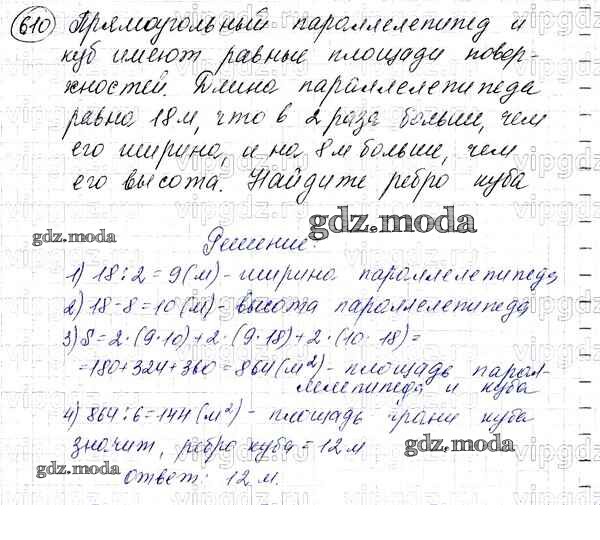 610 Прямоугольный параллелепипед и
куб имеют равные площади повер-
хностей. Длина параллелепипеда
равна 18м, что в 2 раза больше, чем
его ширина, и на 8м больше, чем
его высота. Найдите ребро куба
gdz.moda
gdz.moda
Решение:
1) 18:2=9(м)- ширина параллелепипеда
2) 18-8=10(м)- высота параллелепипеда
3) S=2·(9·10)+2·(9·18)+2·(10·18)=
=180+324+360=864(м²)- площадь парал-
лелепипеда и куба
gdz.moda
4) 864:6=144(м²)- площадь грани куба
значит, ребро куба=12м
gdz.moda
gdz.moda
ответ: 12м.